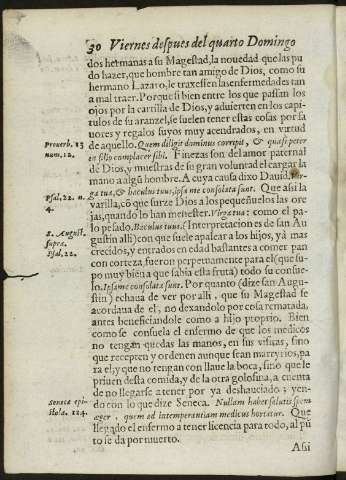 30 Viernes despues del quarto Domingo
dos hermanas a su Magestad, la nouedad que las pu
do hazer, que hombre tan amigo de Dios, como su
hermano Lazaro, le traxessen las enfermedades tan
a mal traer. Porque si bien entre los que passan los
ojos por la cartilla de Dios, y aduierten en los capi
tulos de su aranzel, se suelen tener estas cosas por fa
uores y regalos suyos muy acendrados, en virtud
Prouerb. 13
num. 12.
de aquello. Quem diligit dominus corripit, & quasi pater
en filio complacet sibi. Finezas son del amor paternal
de Dios, y muestras de su gran voluntad el cargar la
mano a algũ hombre. A cuya causa dixo Dauid,
Psal. 22. n.
4.
ga tua, & baculus tuus, ipsa me consolata sunt. Que assi la
varilla, cõ que surze Dios a los pequeñuelos las ore
jas, quando lo han menester. Virga tua: como el pa-
S. August.
supra.
Psal. 22.
lo pesado, Baculus tuus. (Interpretaciones de san Au
gustin alli) con que suele apalear a los hijos, yà mas
crecidos, y entrados en edad bastantes a comer pan
con corteza, fueron perpetuamente para el (que su-
po muy bien a que sabia esta fruta) todo su consue-
lo. Ipsa me consolata sunt. Por quanto (dize san Augu-
stin) echaua de ver por alli, que su Magestad se
acordaua de el, no dexandolo por cosa rematada,
antes beneficiandole como a hijo proprio. Bien
como se consuela el enfermo de que los medicos
no tengan quedas las manos, en sus visitas, sino
que recepten y ordenen aunque sean martyrios, pa
ra el, y que no tengan con llaue la boca, sino que le
priuen desta comida, y de la otra golosina, a cuenta
de no llegarse a tener por ya deshauciado; yen-
Seneca epi-
stola. 124.
do con lo que dize Seneca. Nullam habet salutis spem
æger, quem ad intemperantiam medicus hortatur. Que
llegado el enfermo a tener licencia para todo, al pũ
to se da por muerto.
Assi